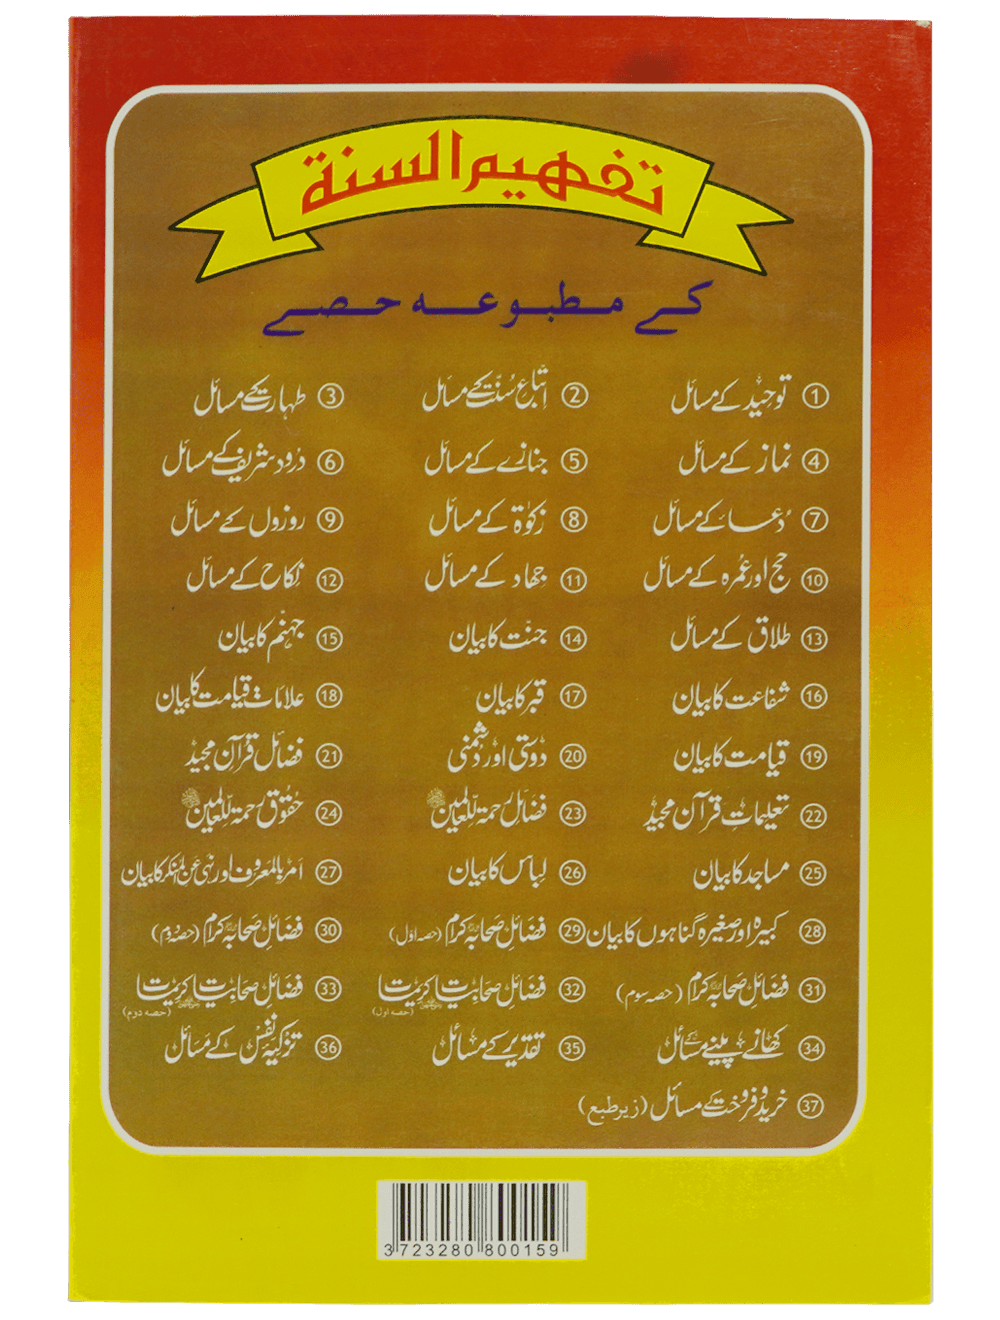 تفہیم السنۃ
کے مطبوعہ حصے
① توحید کے مسائل ② اتباع سُنّت کے مسائل ③ طہارت کے مسائل
④ نماز کے مسائل ⑤ جنازے کے مسائل ⑥ درود شریف کے مسائل
⑦ دُعا کے مسائل ⑧ زکوٰۃ کے مسائل ⑨ روزوں کے مسائل
⑩ حج اور عُمرہ کے مسائل ⑪ جہاد کے مسائل ⑫ نکاح کے مسائل
⑬ طلاق کے مسائل ⑭ جنّت کا بیان ⑮ جہنّم کا بیان
⑯ شفاعت کا بیان ⑰ قبر کا بیان ⑱ علاماتِ قیامت کا بیان
⑲ قیامت کا بیان ⑳ دوستی اور دشمنی ㉑ فضائل قرآن مجید
㉒ تعلیماتِ قرآن مجید ㉓ فضائل رحمۃ للعالمین ㉔ حقوق رحمۃ للعالمین
㉕ مساجد کا بیان ㉖ لباس کا بیان ㉗ امر بالمعروف اور نہی عن المنکر کا بیان
㉘ کبیرہ اور صغیرہ گناہوں کا بیان ㉙ فضائلِ صحابہ کرام (حصہ اول) ㉚ فضائلِ صحابہ کرام (حصہ دوم)
㉛ فضائلِ صحابہ کرام (حصہ سوم) ㉜ فضائلِ صحابیات کریمات (حصہ اول) ㉝ فضائلِ صحابیات کریمات (حصہ دوم)
㉞ کھانے پینے کے مسائل ㉟ تقدیر کے مسائل ㊱ تزکیہ نفس کے مسائل
㊲ خرید و فروخت کے مسائل (زیر طبع)
3 723280 800159